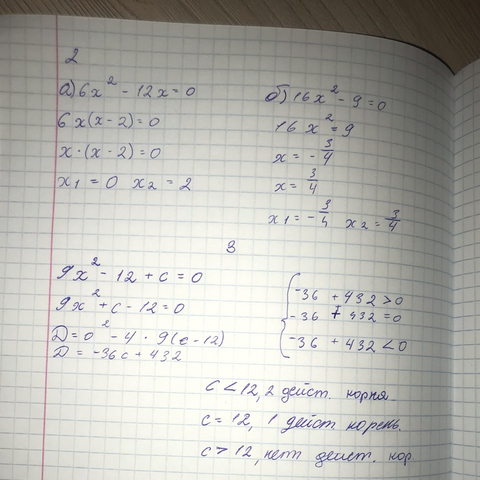 2
а) 6x² - 12x = 0
6x(x - 2) = 0
x · (x - 2) = 0
x₁ = 0 x₂ = 2
б) 16x² - 9 = 0
16x² = 9
x = - 3/4
x = 3/4
x₁ = - 3/4 x₂ = 3/4
3
9x² - 12 + c = 0
9x² + c - 12 = 0
D = 0² - 4 · 9(c - 12)
D = -36c + 432
-36 + 432 > 0
-36 + 432 = 0
-36 + 432 < 0
c < 12, 2 дейст. корня.
c = 12, 1 дейст. корень.
c > 12, нет дейст. кор.